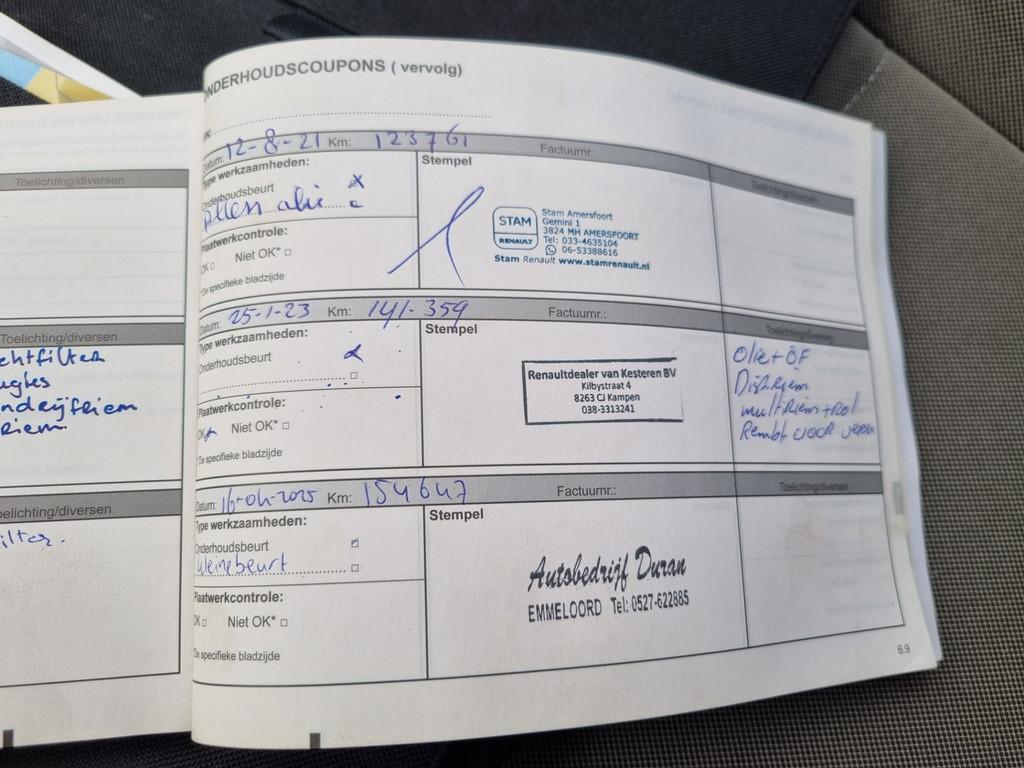 Toelichting/diversen
Toelichting/diversen
chtfilter
ugies
ndrijfriem
riem
elichting/diversen
ilter.
ONDERHOUDSCOUPONS ( vervolg)
Datum: 12-8-21 Km: 123761 Factuurnr.:
Type werkzaamheden:
Onderhoudsbeurt
Plaatwerkcontrole:
OK □ Niet OK* □
*De specifieke bladzijde
Stempel
STAM
RENAULT
Stam Amersfoort
Gemini 1
3824 MH AMERSFOORT
Tel: 033-4635104
06-53388616
Stam Renault www.stamrenault.nl
Toelichting/diversen
Datum: 25-1-23 Km: 141-359 Factuurnr.:
Type werkzaamheden:
Onderhoudsbeurt
Plaatwerkcontrole:
OK Niet OK* □
*De specifieke bladzijde
Stempel
Renaultdealer van Kesteren BV
Kilbystraat 4
8263 CJ Kampen
038-3313241
Toelichting/diversen
Olie + OF
Dis.Riem
multiRiem + Rol
Rembl voor vern
Datum: 16-04-2025 Km: 154647 Factuurnr.:
Type werkzaamheden:
Onderhoudsbeurt
kleinebeurt
Plaatwerkcontrole:
OK □ Niet OK* □
*De specifieke bladzijde
Stempel
Autobedrijf Duran
EMMELOORD Tel: 0527-622885
Toelichting/diversen
6.9